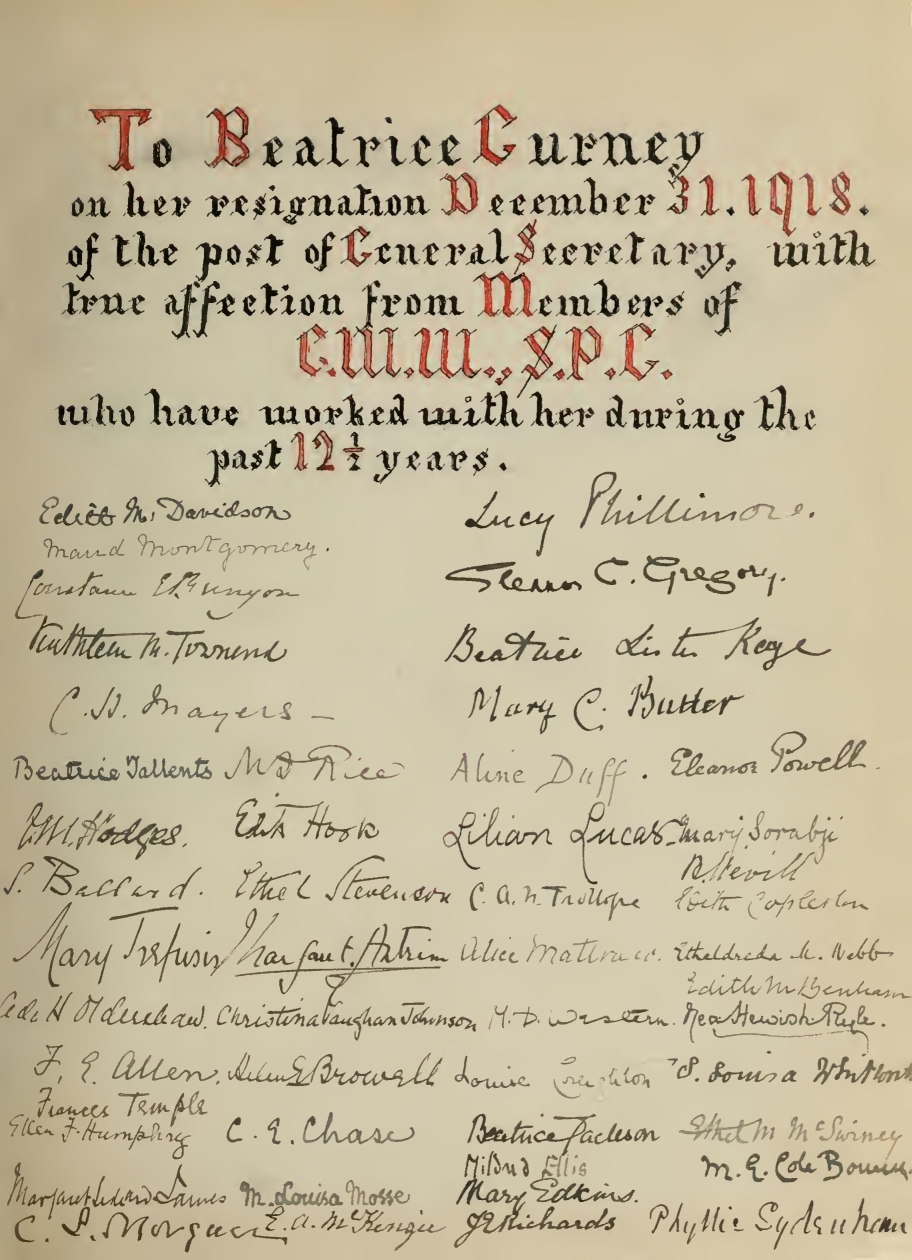 To Beatrice Gurney
on her resignation December 31.1918.
of the post of General Secretary, with
true affection from Members of
C.W.W., S.P.G.
who have worked with her during the
past 12½ years.
Edith M. Davidson Lucy Phillimore.
Maud Montgomery.
Eleanor C. Gregory.
Kathleen M. Townend Beatrice Lister Kaye
C. H. Mayers – Mary C. Butler
Beatrice Tallents M D Rice Aline Duff. Eleanor Powell.
E.M. Hodges. Edith Hook Lilian Lucas. Mary Sorabji
R. Nevill
S. Ballard. Ethel Stevenson C. A. N. Trollope Edith Copleston
Mary Trefusis Margaret Antrim Alice Etheldreda M. Webb
Edith M Benham
Christina Vaughan Johnson M. D. Western.
F. E. Allen. Helen E Browell Louise Creighton S. Louisa
Frances Temple
Ellen F. Humphry C. E. Chase Beatrice Jackson Ethel M McSwiney
Mildred Ellis M. E. Cole
Margaret James M. Louisa Mosse Mary Edkins.
C. L. E. A. McKenzie J E Richards Phyllis Sydenham